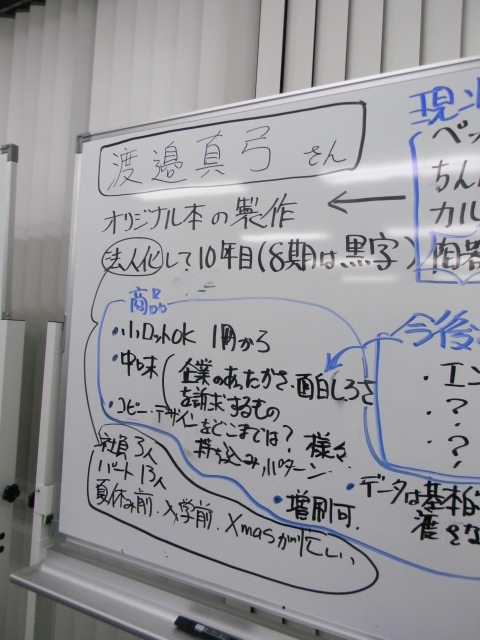 渡邉真弓さん
オリジナル本の製作
法人化して10年目(8期は黒字)
商品
・小ロットOK 1冊から
・中味
企業のあたたかさ・面白しろさ
を訴求するもの
・コピー・デザインをどこまでは? 様々
持ち込みパターン
・増刷可.
社員 3人
パート 13人
夏休み前. 入学前. Xmasが忙しい
現
ベッ
ちん
カル
陶器
今後
・エン
・?
・?
・データは基本的
渡さな